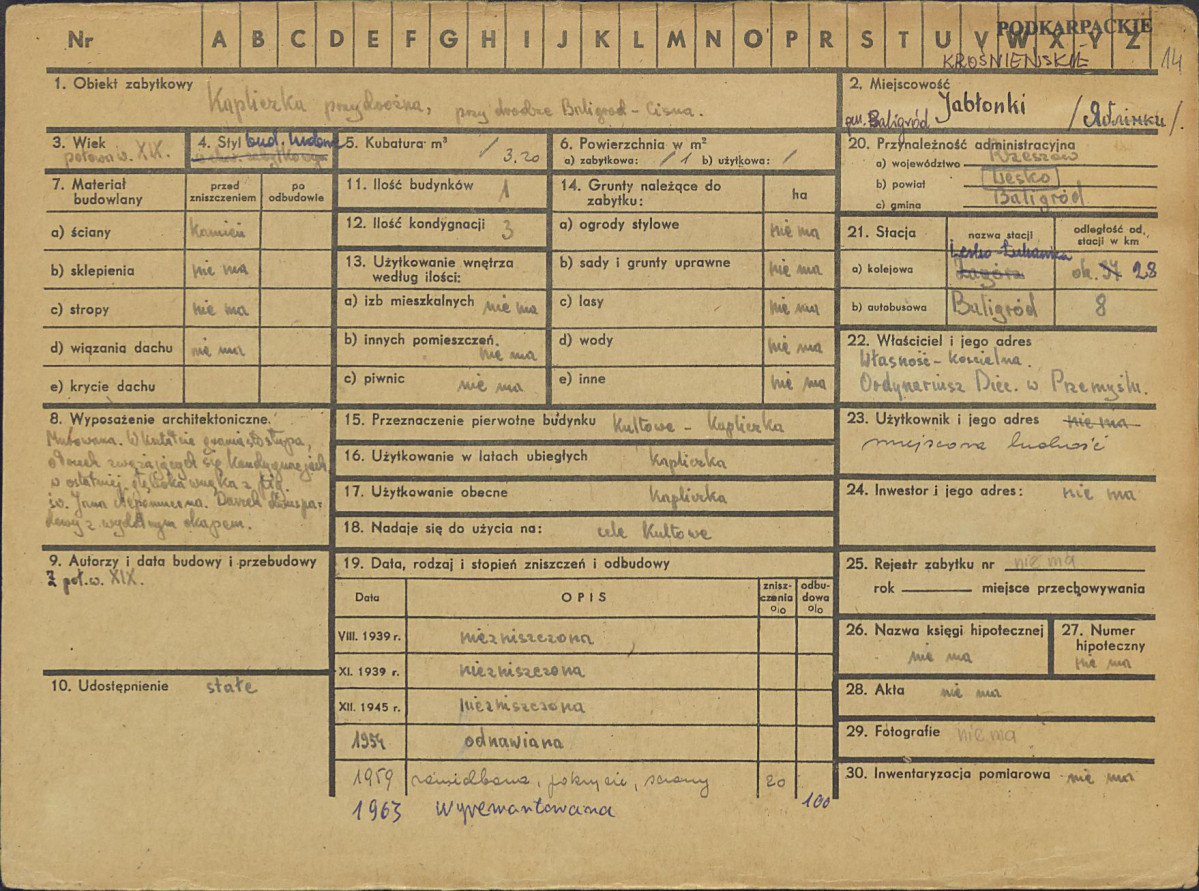 Nr A B C D E F G H I J K L M N O P R S T U V W X Y Z
PODKARPACKIE
KROŚNIEŃSKIE
14
1. Obiekt zabytkowy
Kapliczka przydrożna, przy drodze Baligród - Cisna.
2. Miejscowość
Jabłonki
pow. Baligród
3. Wiek
połowa w. XIX.
4. Styl bud. ludowe
5. Kubatura m³ / 3,20
6. Powierzchnia w m²
a) zabytkowa: / 1 b) użytkowa: /
20. Przynależność administracyjna
a) województwo Rzeszów
b) powiat Lesko
c) gmina Baligród
7. Materiał budowlany
przed zniszczeniem
po odbudowie
a) ściany kamień
b) sklepienia nie ma
c) stropy nie ma
d) wiązania dachu nie ma
e) krycie dachu
11. Ilość budynków 1
12. Ilość kondygnacji 3
13. Użytkowanie wnętrza według ilości:
a) izb mieszkalnych nie ma
b) innych pomieszczeń nie ma
c) piwnic nie ma
14. Grunty należące do zabytku:
ha
a) ogrody stylowe nie ma
b) sady i grunty uprawne nie ma
c) lasy nie ma
d) wody nie ma
e) inne nie ma
21. Stacja
nazwa stacji
odległość od stacji w km
a) kolejowa Lesko Łukawica Zagórz ok. 34 28
b) autobusowa Baligród 8
22. Właściciel i jego adres
Własność - kościelna.
Ordynariusz Diec. w Przemyślu.
8. Wyposażenie architektoniczne.
Murowana. W kształcie graniastosłupa,
o trzech zwężających się kondygnacjach
w ostatniej głęboka wnęka z fig.
św. Jana Nepomucena. Daszek dwuspa-
dowy z wydatnym okapem.
15. Przeznaczenie pierwotne budynku Kultowe - Kapliczka
16. Użytkowanie w latach ubiegłych Kapliczka
17. Użytkowanie obecne Kapliczka
18. Nadaje się do użycia na: cele Kultowe
23. Użytkownik i jego adres nie ma
miejscowa ludność
24. Inwestor i jego adres: nie ma
9. Autorzy i data budowy i przebudowy
Z poł. w. XIX.
10. Udostępnienie stałe
19. Data, rodzaj i stopień zniszczeń i odbudowy
Data
OPIS
znisz-czenia %
odbu-dowa %
VIII. 1939 r. niezniszczona
XI. 1939 r. niezniszczona
XII. 1945 r. niezniszczona
1954 odnawiana
1959 zaniedbana, pokrycie, ściany 20
1963 Wyremontowana 100
25. Rejestr zabytku nr nie ma
rok miejsce przechowywania
26. Nazwa księgi hipotecznej
nie ma
27. Numer hipoteczny
nie ma
28. Akta nie ma
29. Fotografie nie ma
30. Inwentaryzacja pomiarowa nie ma